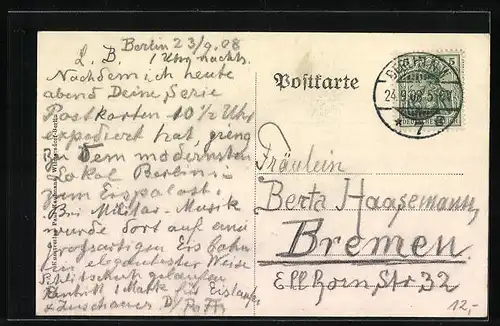 Berlin 23/9.08
L. B. 1 Uhr nachts.
Nachdem ich heute
abend Deine Serie
Postkarten 10 1/2 Uhr
expediert hat, gieng
in dem modernsten
Lokal Berlins:
zum Eispalast.
Bei Militär-Musik
wurde dort auf einer
großartigen Eisbahn
in elegantester Weise
Schlittschuh gelaufen
Eintritt 1 Mark für Eisläufer
+ Zuschauer
Postkarte
24.9.08
5
Fräulein
Berta Haasemann,
Bremen
Ellhornstr 32
12,-